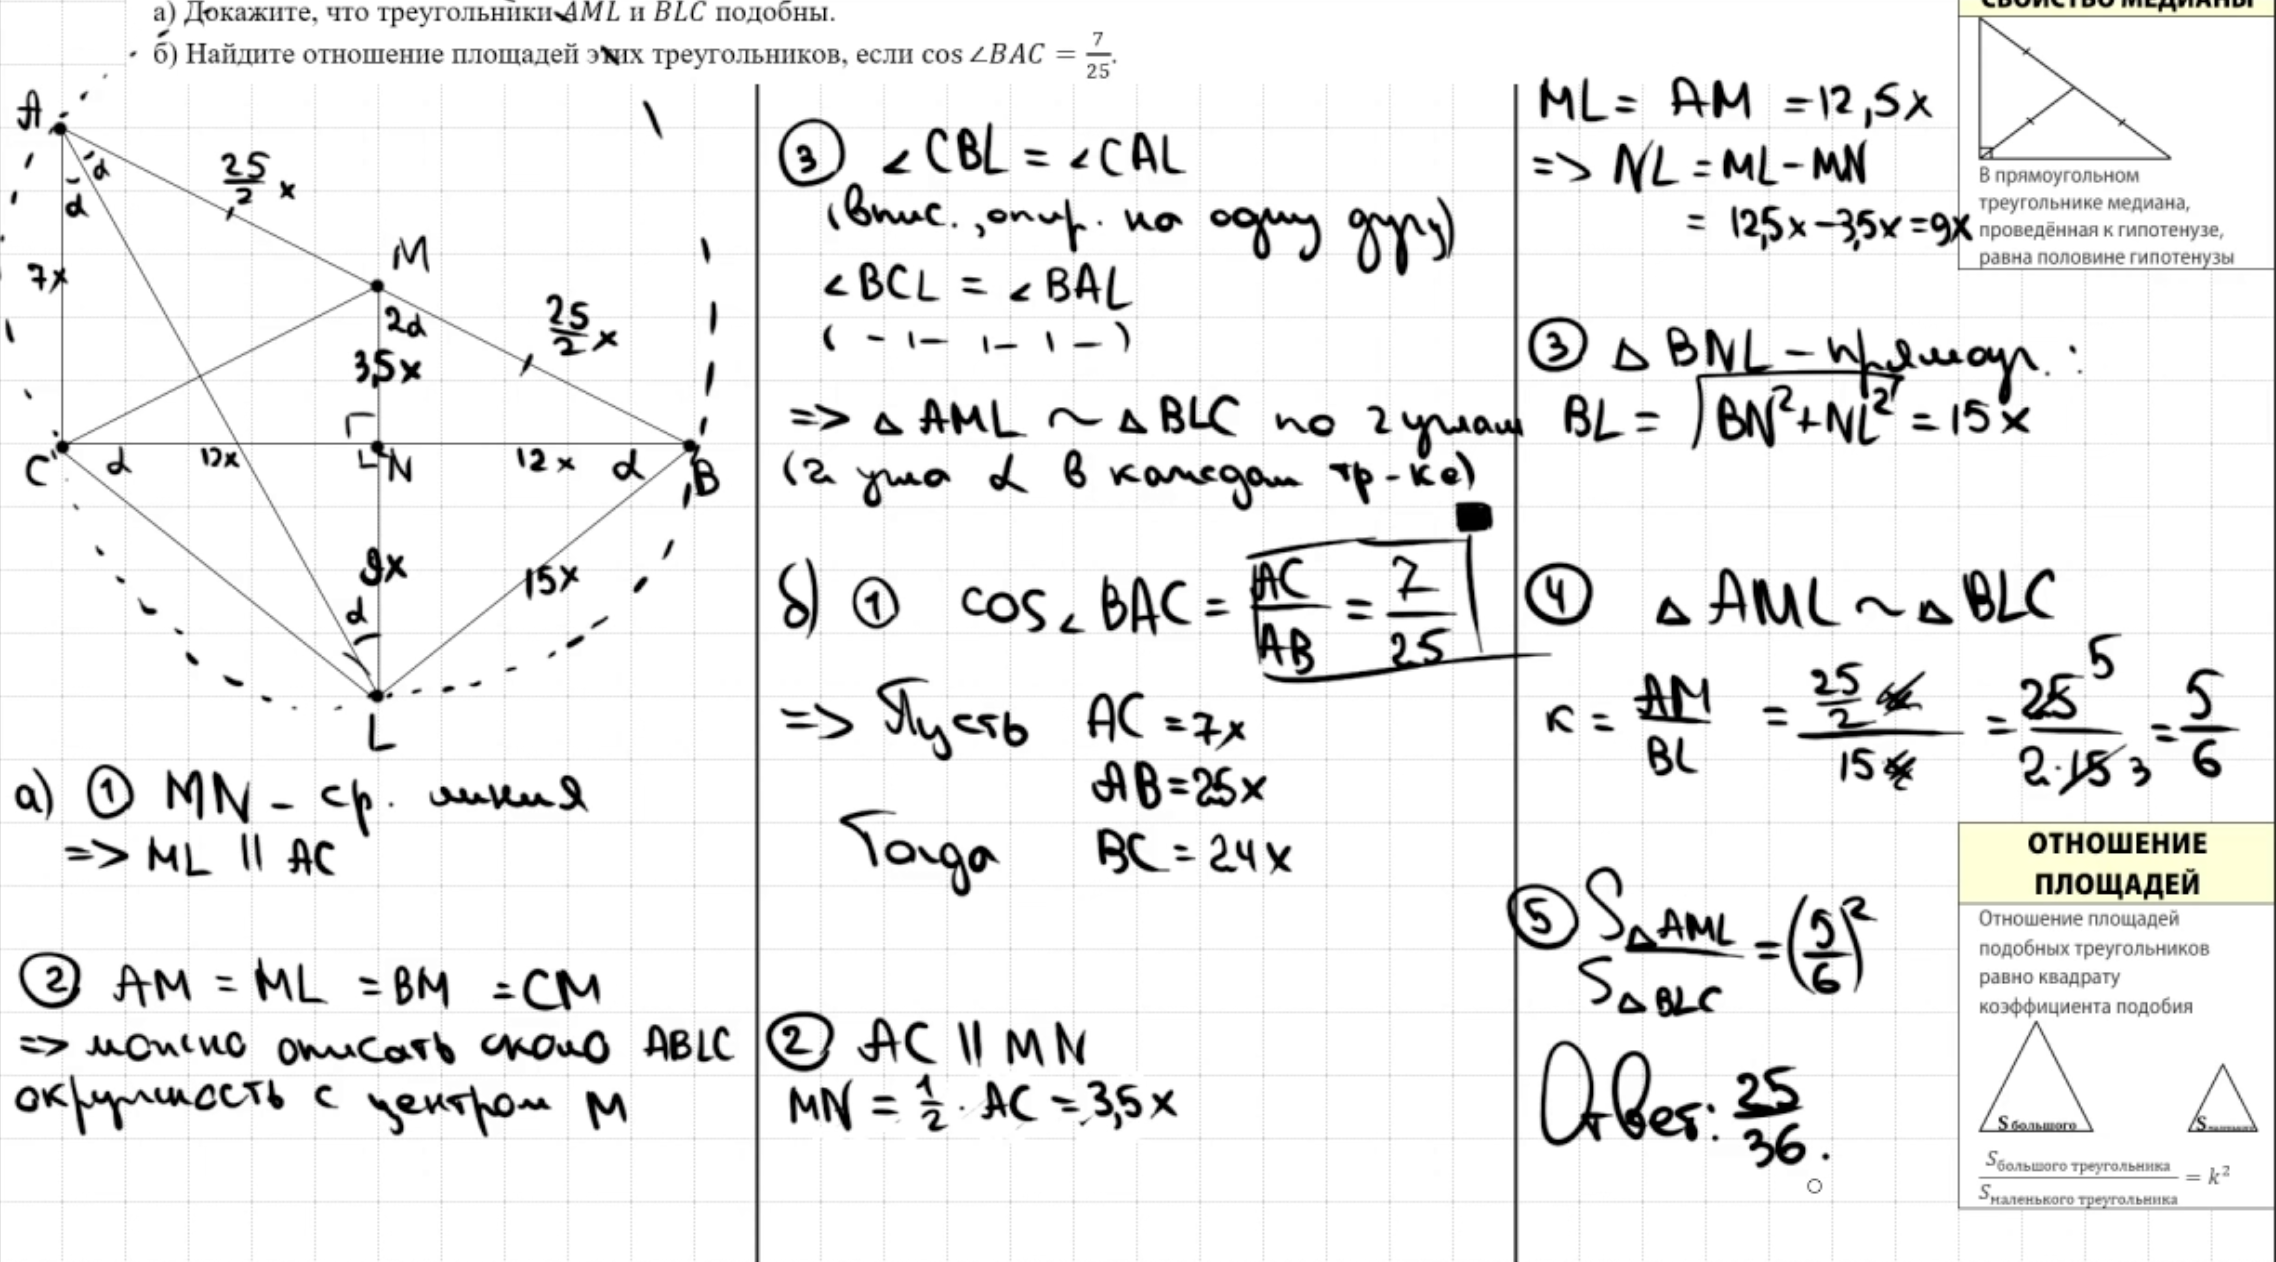 а) Докажите, что треугольники AML и BLC подобны.
б) Найдите отношение площадей этих треугольников, если cos ∠BAC = 7/25.
A
α
α
25/2 x
7x
M
2α
3,5x
25/2 x
C
α
12x
N
12x
α
B
9x
α
15x
L
а) ① MN – ср. линия
=> ML || AC
② AM = ML = BM = CM
=> можно описать около ABLC
окружность с центром M
③ ∠CBL = ∠CAL
(впис., опир. на одну дугу)
∠BCL = ∠BAL
( – 1 – 1 – 1 – )
=> △ AML ~ △ BLC по 2 углам
(2 угла α в каждом тр-ке)
б) ① cos∠BAC = AC/AB = 7/25
=> Пусть AC = 7x
AB = 25x
Тогда BC = 24x
② AC || MN
MN = 1/2 · AC = 3,5x
ML = AM = 12,5x
=> NL = ML – MN
= 12,5x – 3,5x = 9x
③ △ BNL – прямоуг. :
BL = √BN²+NL² = 15x
④ △ AML ~ △ BLC
к = AM/BL = 25/2 x / 15x = 25 5 / 2·15 3 = 5/6
⑤ S△AML / S△BLC = (5/6)²
Ответ: 25/36.
СВОЙСТВО МЕДИАНЫ
В прямоугольном
треугольнике медиана,
проведённая к гипотенузе,
равна половине гипотенузы
ОТНОШЕНИЕ
ПЛОЩАДЕЙ
Отношение площадей
подобных треугольников
равно квадрату
коэффициента подобия
S большого
S маленького
S большого треугольника / S маленького треугольника = k²